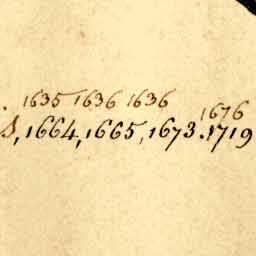 . 1635 1636 1636 1676
S, 1664, 1665, 1673. 1719